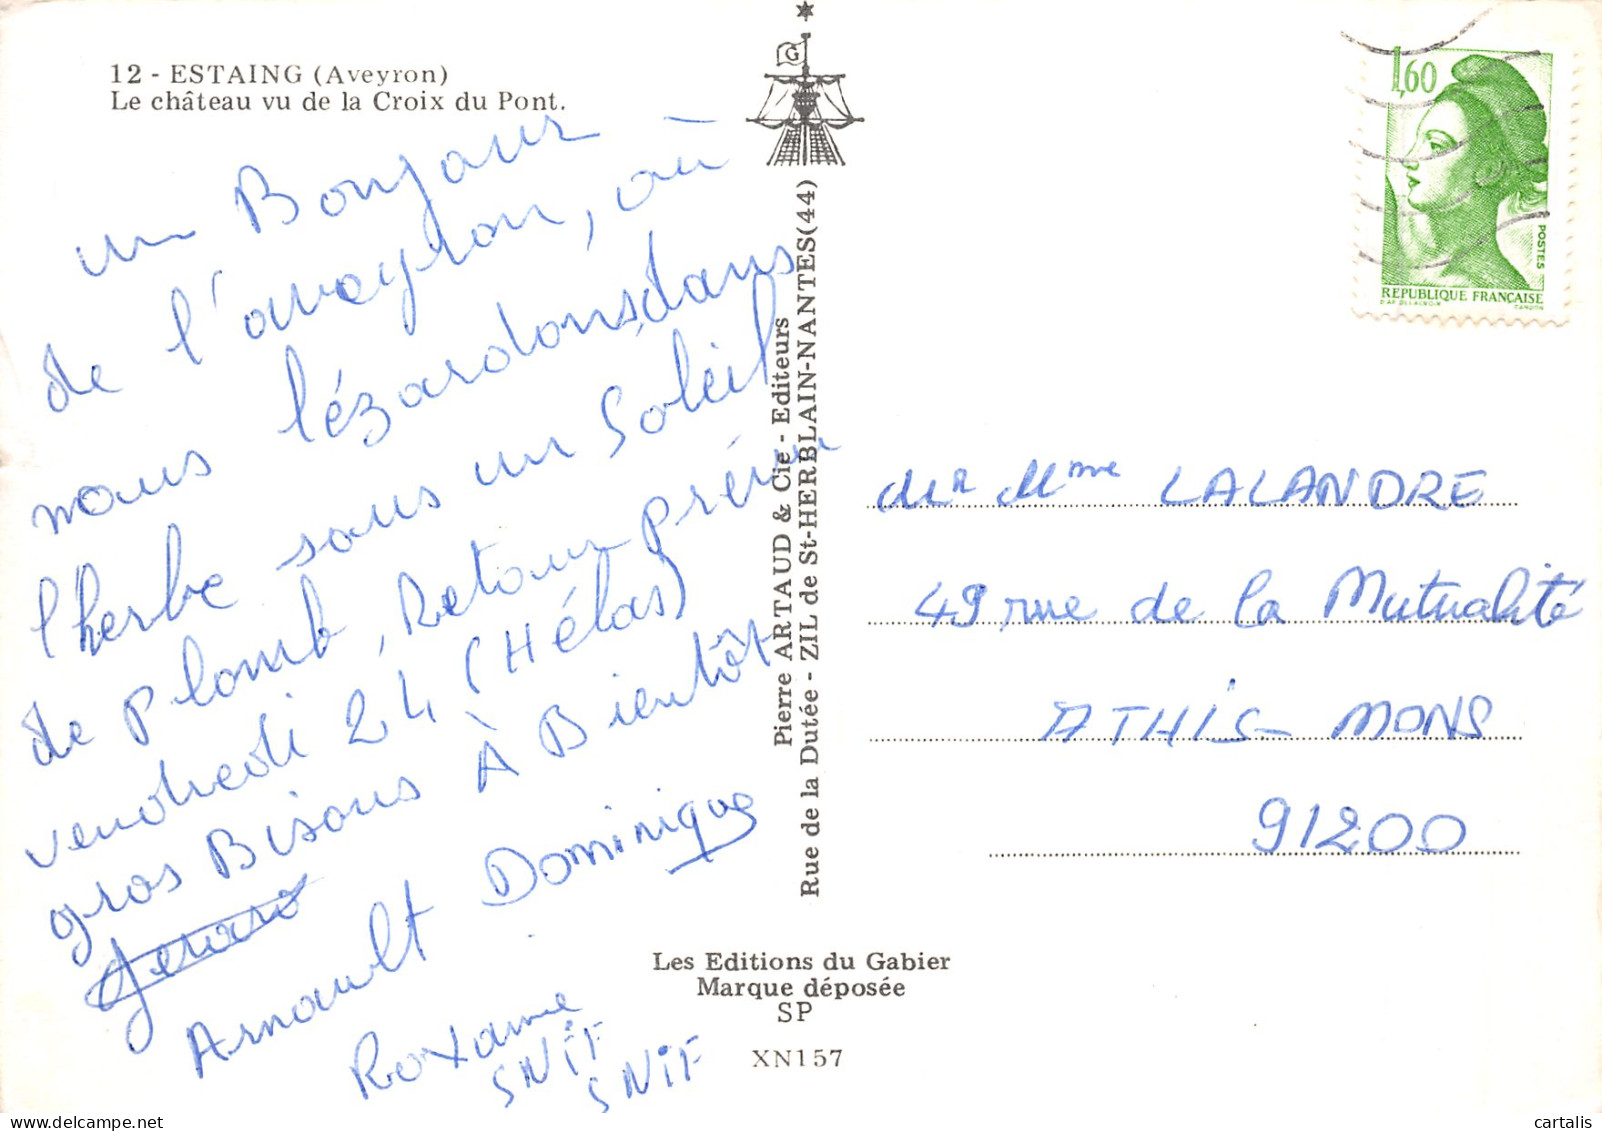 12 - ESTAING (Aveyron)
Le château vu de la Croix du Pont.
un Bonjour
de l'aveyron, où
nous lézardons dans
l'herbe sous un Soleil
de Plomb, Retour prévu
vendredi 24 (Hélas)
gros Bisous À Bientôt
Gerard
Arnault Dominique
Roxane
SNIF
SNIF
G
Pierre ARTAUD & Cie - Editeurs
Rue de la Dutée - ZIL de St-HERBLAIN-NANTES(44)
Les Editions du Gabier
Marque déposée
SP
XN157
1,60
POSTES
REPUBLIQUE FRANÇAISE
D'AP. DELACROIX GANDON
Mr Mme LALANDRE
49 rue de la Mutualité
ATHIS-MONS
91200
cartalis
delcampe.net